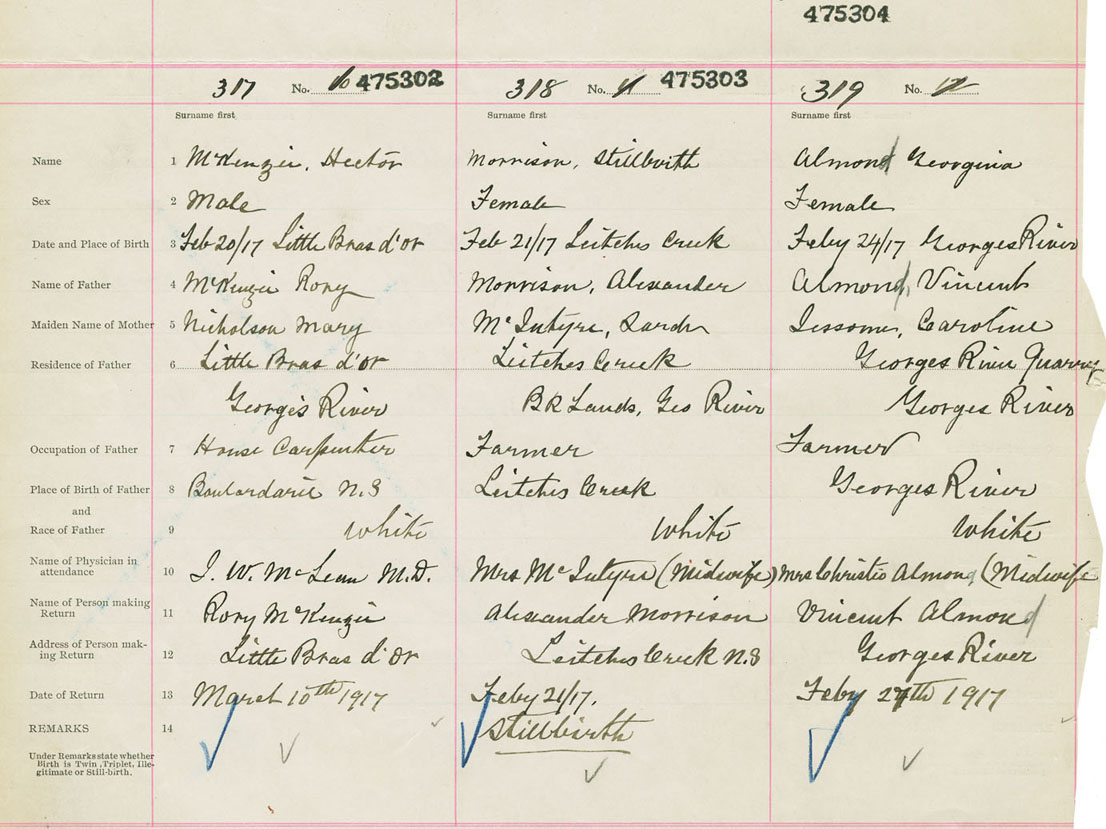 475304
317 No. 10 475302 318 No. 11 475303 319 No. 12
Surname first Surname first Surname first
Name 1 McKenzie, Hector Morrison, Stillbirth Almond Georgina
Sex 2 Male Female Female
Date and Place of Birth 3 Feb 20/17 Little Bras d'or Feb 21/17 Leitches Creek Feby 24/17 Georges River
Name of Father 4 McKenzie Rory Morrison, Alexander Almond, Vincent
Maiden Name of Mother 5 Nicholson Mary McIntyre, Sarah Caroline
Residence of Father 6 Little Bras d'or Leitches Creek Georges River Quarry
George's River BR Lands, Geo River Georges River
Occupation of Father 7 House Carpenter Farmer Farmer
Place of Birth of Father 8 Boulardarie N.S Leitches Creek Georges River
and
Race of Father 9 White White White
Name of Physician in
attendance 10 J. W. McLean M.D. Mrs McIntyre (Midwife) Mrs Christie Almond, (Midwife
Name of Person making
Return 11 Rory McKenzie Alexander Morrison Vincent Almond
Address of Person mak-
ing Return 12 Little Bras d'or Leitches Creek N.S Georges River
Date of Return 13 March 10th 1917 Feby 21/17. Feby 27th 1917
REMARKS 14 Stillbirth
Under Remarks state whether
Birth is Twin, Triplet, Ille-
gitimate or Still-birth.